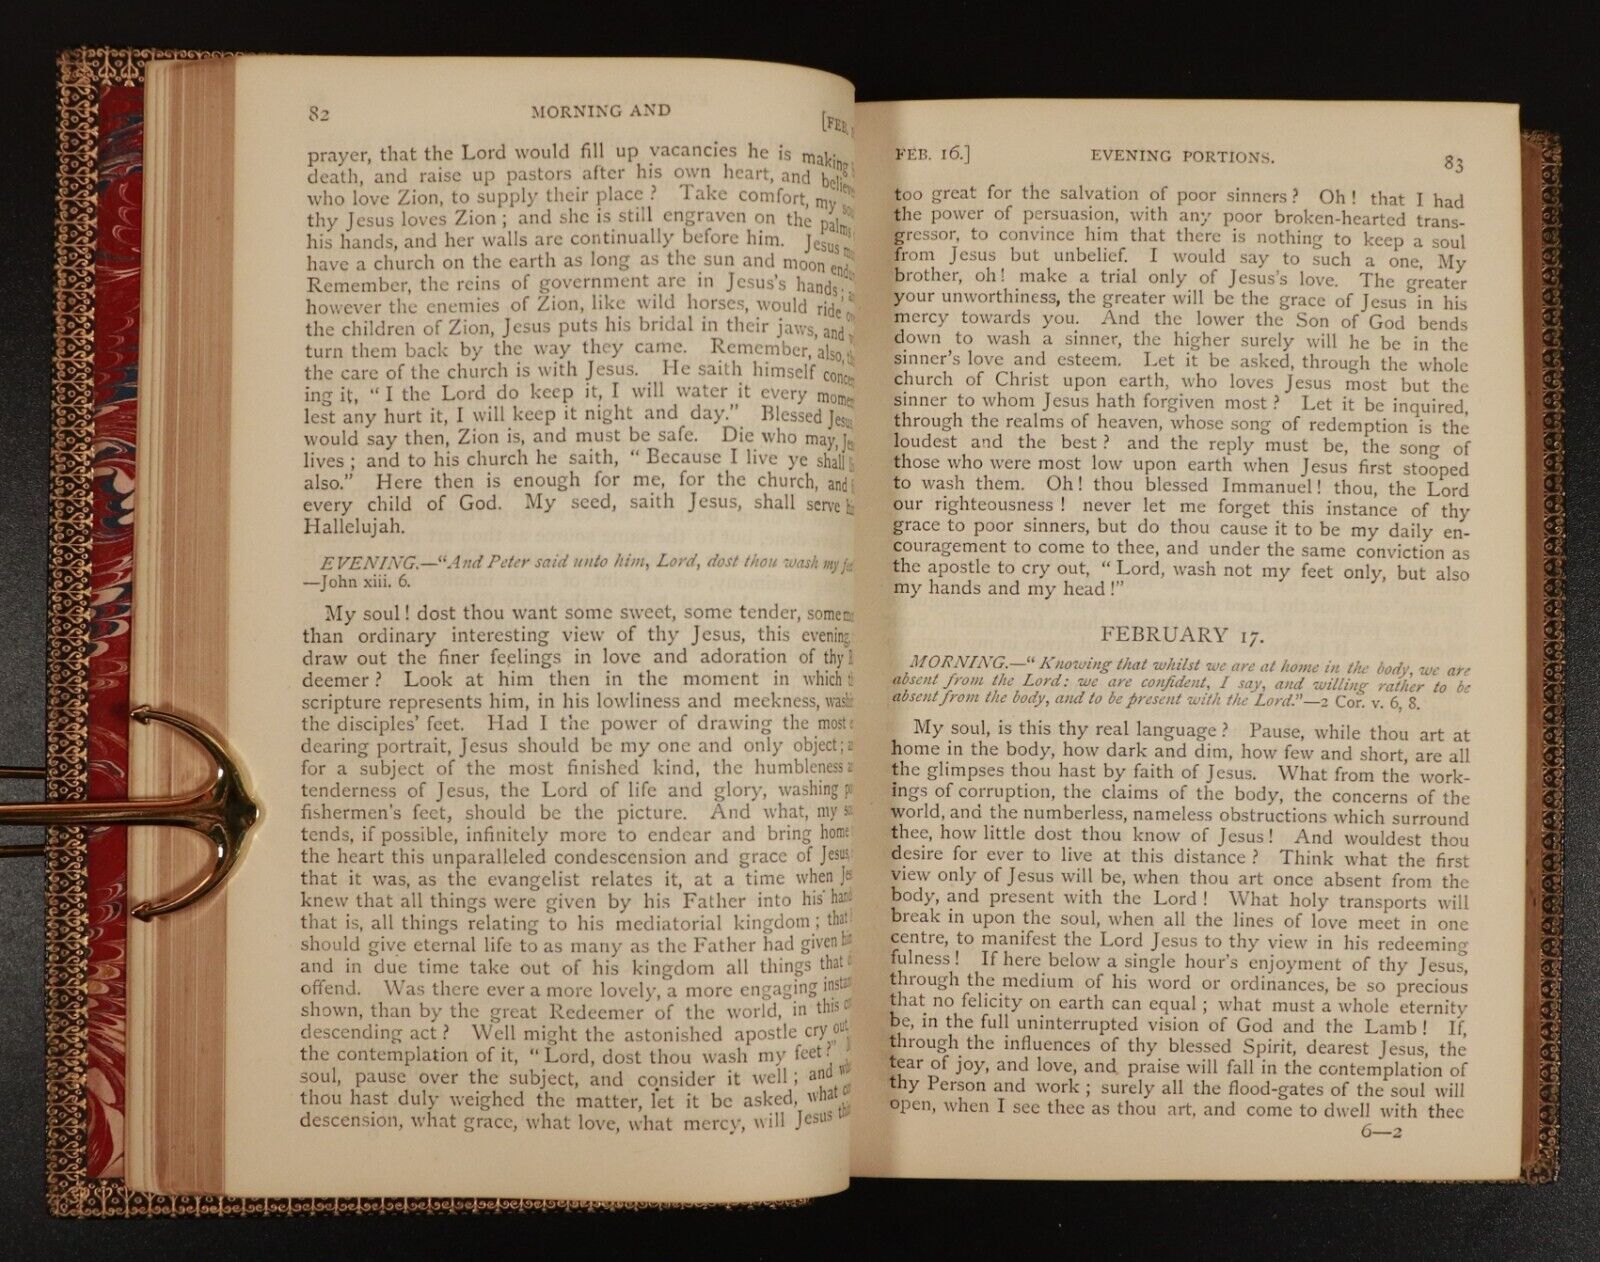 82
MORNING AND
[FEB.
prayer, that the Lord would fill up vacancies he is making
death, and raise up pastors after his own heart, and
who love Zion, to supply their place ? Take comfort, my
thy Jesus loves Zion ; and she is still engraven on the palms
his hands, and her walls are continually before him. Jesus
have a church on the earth as long as the sun and moon
Remember, the reins of government are in Jesus's hands ;
however the enemies of Zion, like wild horses, would ride
the children of Zion, Jesus puts his bridal in their jaws, and
turn them back by the way they came. Remember, also,
the care of the church is with Jesus. He saith himself
ing it, “ I the Lord do keep it, I will water it every
lest any hurt it, I will keep it night and day.” Blessed
would say then, Zion is, and must be safe. Die who may,
lives ; and to his church he saith, “ Because I live ye shall
also.” Here then is enough for me, for the church, and
every child of God. My seed, saith Jesus, shall serve
Hallelujah.
EVENING.—“And Peter said unto him, Lord, dost thou wash my
—John xiii. 6.
My soul ! dost thou want some sweet, some tender, some
than ordinary interesting view of thy Jesus, this evening,
draw out the finer feelings in love and adoration of thy
deemer ? Look at him then in the moment in which
scripture represents him, in his lowliness and meekness,
the disciples' feet. Had I the power of drawing the most
dearing portrait, Jesus should be my one and only object ;
for a subject of the most finished kind, the humbleness
tenderness of Jesus, the Lord of life and glory, washing
fishermen's feet, should be the picture. And what, my
tends, if possible, infinitely more to endear and bring home
the heart this unparalleled condescension and grace of Jesus,
that it was, as the evangelist relates it, at a time when
knew that all things were given by his Father into his
that is, all things relating to his mediatorial kingdom ; that
should give eternal life to as many as the Father had given
and in due time take out of his kingdom all things that
offend. Was there ever a more lovely, a more engaging
shown, than by the great Redeemer of the world, in this
descending act ? Well might the astonished apostle cry out,
the contemplation of it, “ Lord, dost thou wash my feet ?”
soul, pause over the subject, and consider it well ; and
thou hast duly weighed the matter, let it be asked, what
descension, what grace, what love, what mercy, will Jesus
FEB. 16.]
EVENING PORTIONS.
83
too great for the salvation of poor sinners ? Oh ! that I had
the power of persuasion, with any poor broken-hearted trans-
gressor, to convince him that there is nothing to keep a soul
from Jesus but unbelief. I would say to such a one, My
brother, oh ! make a trial only of Jesus's love. The greater
your unworthiness, the greater will be the grace of Jesus in his
mercy towards you. And the lower the Son of God bends
down to wash a sinner, the higher surely will he be in the
sinner's love and esteem. Let it be asked, through the whole
church of Christ upon earth, who loves Jesus most but the
sinner to whom Jesus hath forgiven most ? Let it be inquired,
through the realms of heaven, whose song of redemption is the
loudest and the best ? and the reply must be, the song of
those who were most low upon earth when Jesus first stooped
to wash them. Oh ! thou blessed Immanuel ! thou, the Lord
our righteousness ! never let me forget this instance of thy
grace to poor sinners, but do thou cause it to be my daily en-
couragement to come to thee, and under the same conviction as
the apostle to cry out, “ Lord, wash not my feet only, but also
my hands and my head !”
FEBRUARY 17.
MORNING.—“ Knowing that whilst we are at home in the body, we are
absent from the Lord: we are confident, I say, and willing rather to be
absent from the body, and to be present with the Lord.”—2 Cor. v. 6, 8.
My soul, is this thy real language ? Pause, while thou art at
home in the body, how dark and dim, how few and short, are all
the glimpses thou hast by faith of Jesus. What from the work-
ings of corruption, the claims of the body, the concerns of the
world, and the numberless, nameless obstructions which surround
thee, how little dost thou know of Jesus ! And wouldest thou
desire for ever to live at this distance ? Think what the first
view only of Jesus will be, when thou art once absent from the
body, and present with the Lord ! What holy transports will
break in upon the soul, when all the lines of love meet in one
centre, to manifest the Lord Jesus to thy view in his redeeming
fulness ! If here below a single hour's enjoyment of thy Jesus,
through the medium of his word or ordinances, be so precious
that no felicity on earth can equal ; what must a whole eternity
be, in the full uninterrupted vision of God and the Lamb ! If,
through the influences of thy blessed Spirit, dearest Jesus, the
tear of joy, and love, and praise will fall in the contemplation of
thy Person and work ; surely all the flood-gates of the soul will
open, when I see thee as thou art, and come to dwell with thee
6—2